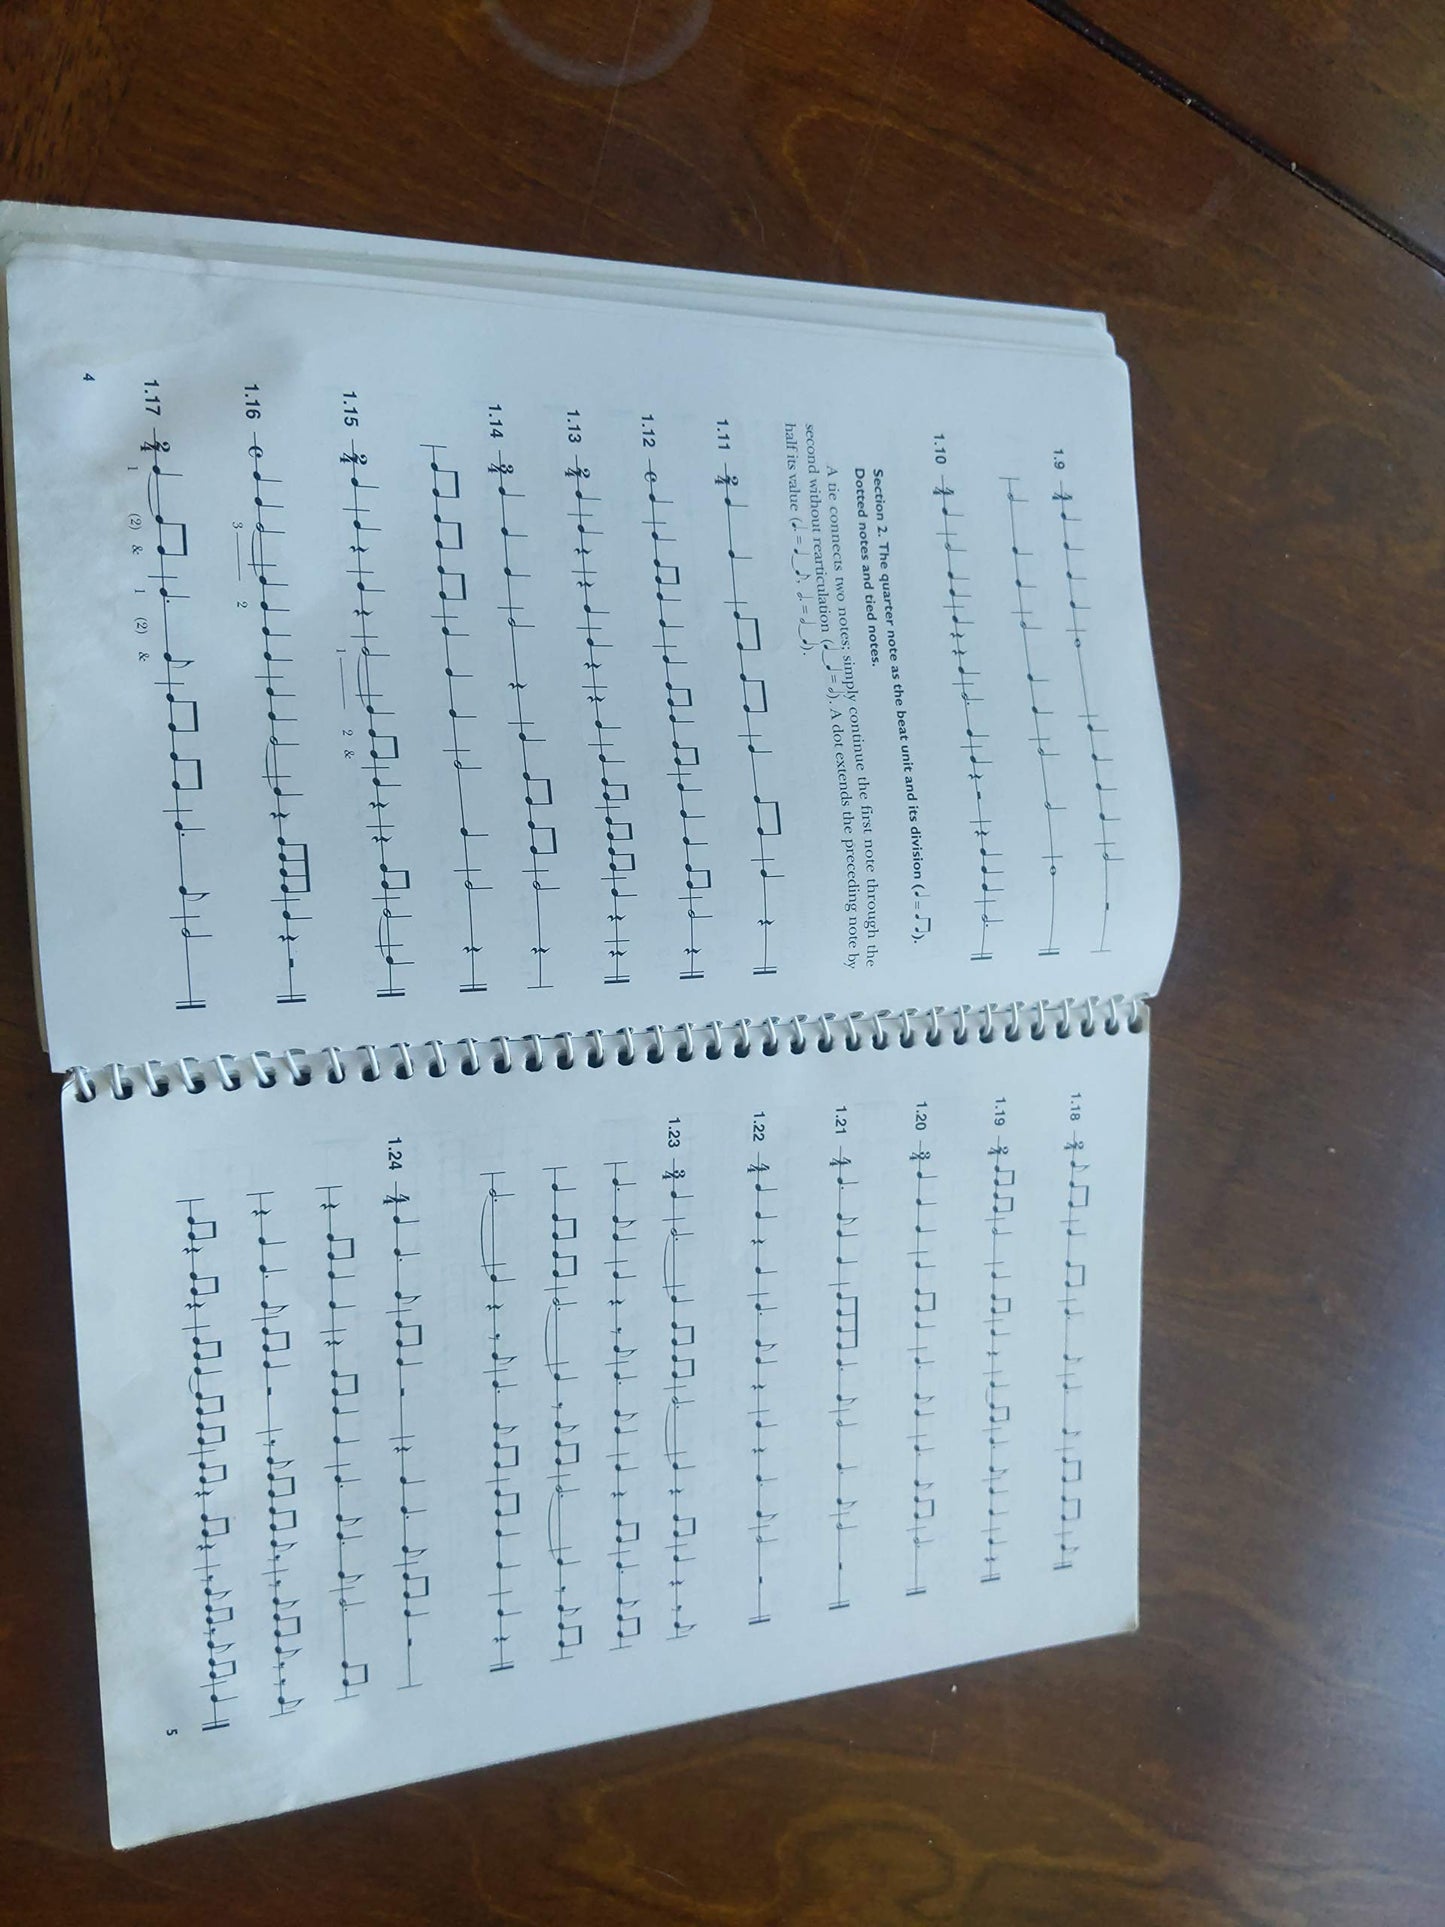 1.9 4
1.10 4
Section 2. The quarter note as the beat unit and its division (♩ = ♫).
Dotted notes and tied notes.
A tie connects two notes; simply continue the first note through the
second without rearticulation (♩‿♩ = 𝅗𝅥). A dot extends the preceding note by
half its value (♩. = ♩‿♪, 𝅗𝅥. = 𝅗𝅥‿♩).
1.11 2/4
1.12 C
1.13 2/4
1.14 3/4
1.15 2/4
1 2 &
1.16 C
3 2
1.17 2/4
1 (2) & 1 (2) &
4
1.18 2/4
1.19 2/4
1.20 3/4
1.21 4
1.22 4
1.23 3/4
1.24 4
5